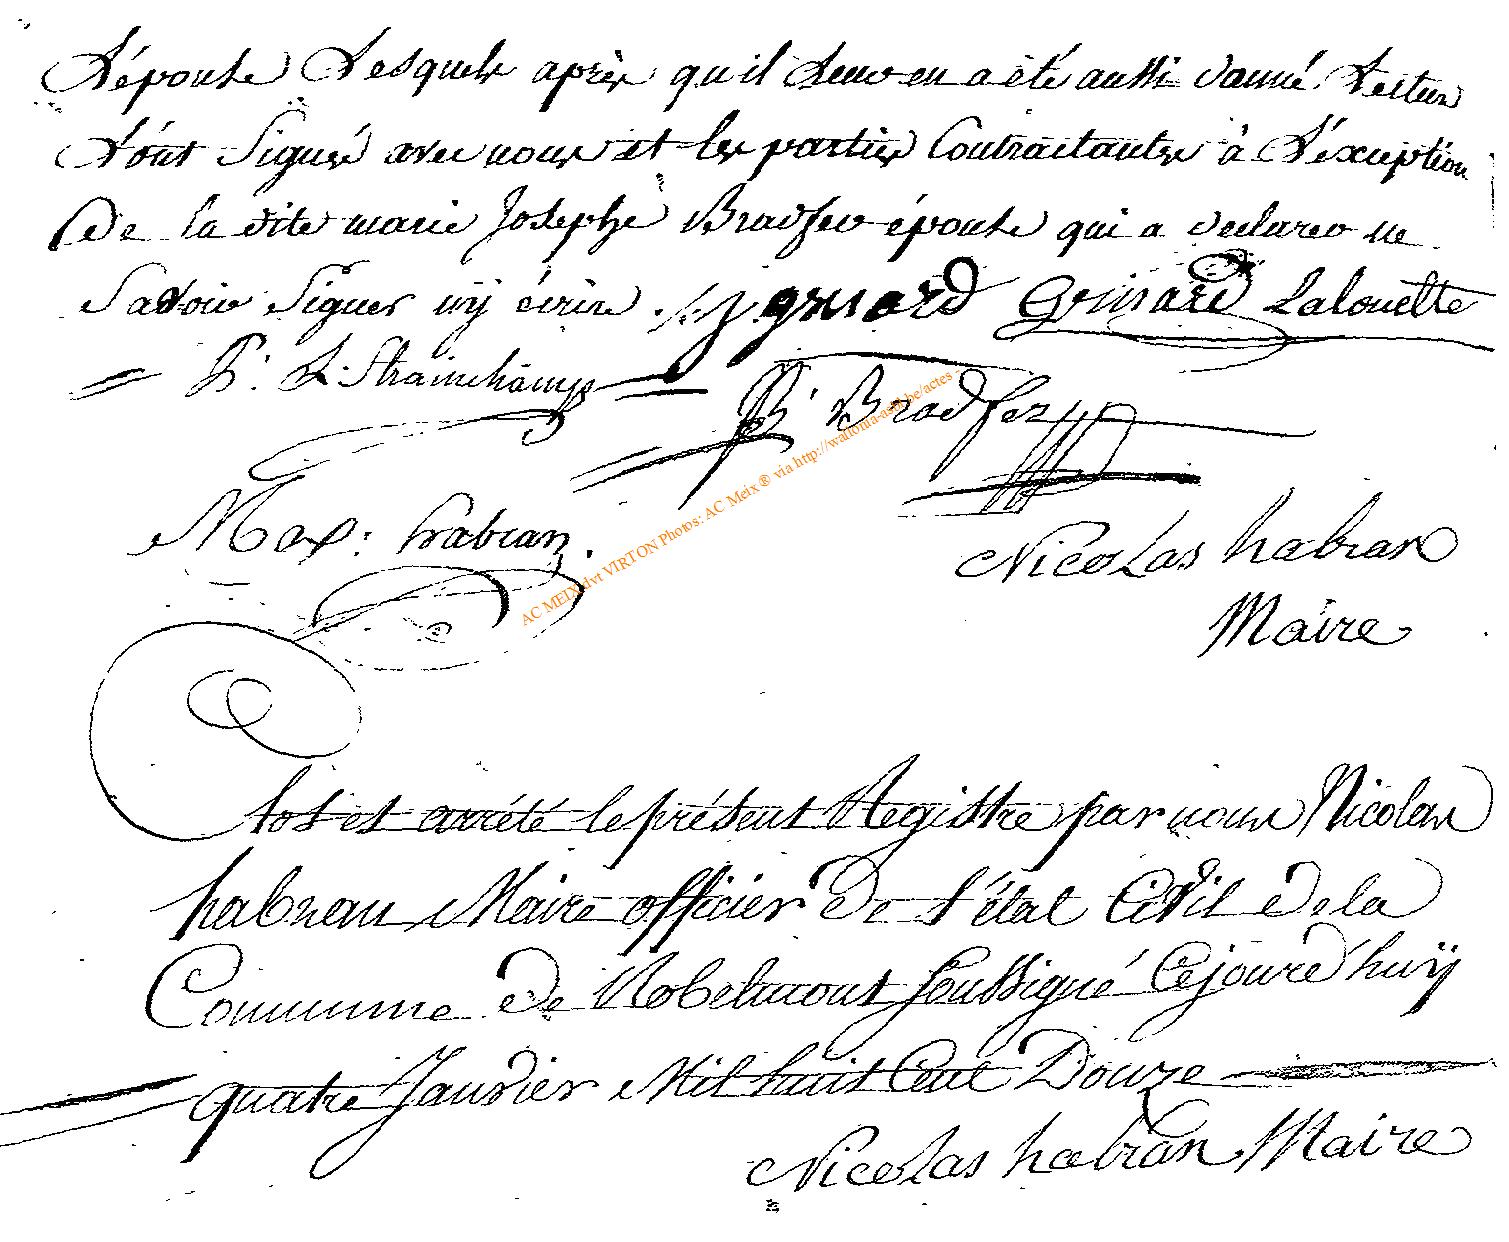 L'épouse Lesquels après qu'il Leur en a été aussi donné Lecture
L'ont Signés avec nous et les parties Contractantes à L'éxception
De la dite marie Josephe Bradfer épouse qui a declarer ne
Savoir Signer nÿ écrire . gerard Lalouette
P: L: Strainchamps B: Bradfer
AC MEIX dvt VIRTON Photos: AC Meix ® via http://wallonia-asbl.be/actes -
Max: habran.
Nicolas habran
Maire
Clos et arrété le présent Registre par nous Nicolas
habran Maire officier De l'état Civil de la
Commune De Robelmont Soussigné Cejourd'huÿ
quatre Janvier Mil huit Cent Douze
Nicolas habran Maire